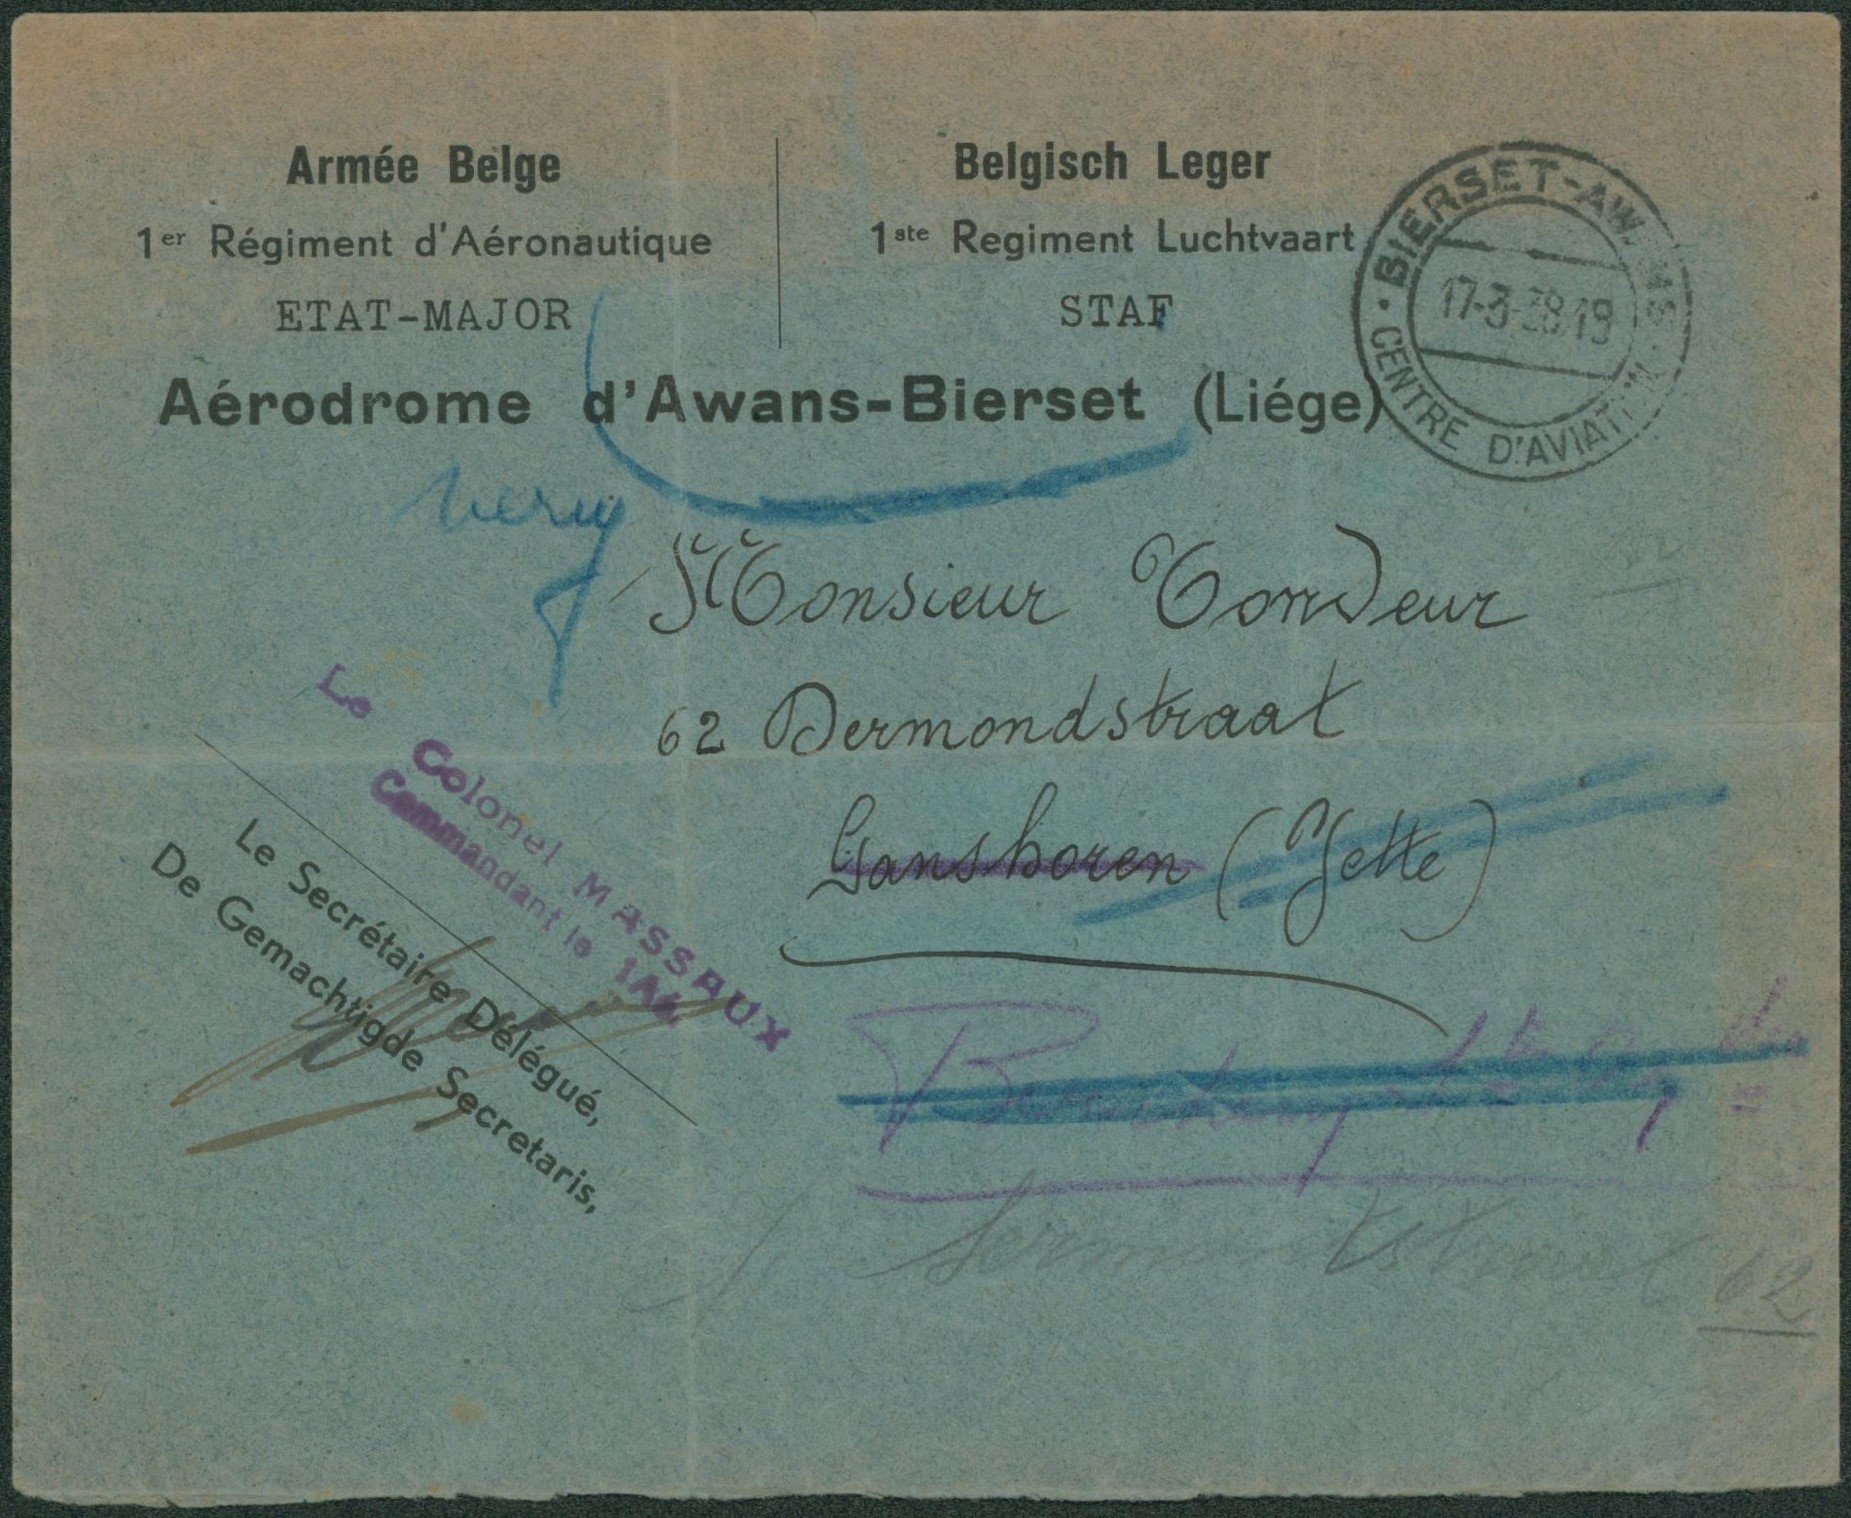 Armée Belge
1er Régiment d'Aéronautique
ETAT-MAJOR
Belgisch Leger
1ste Regiment Luchtvaart
STAF
Aérodrome d'Awans-Bierset (Liége)
BIERSET-AW
17-3-38 19
CENTRE D'AVIATI
Monsieur Tondeur
62 Dermondstraat
Ganshoren (Jette)
Le Colonel MASSAUX
Commandant le 1Aé.
Le Secrétaire Délégué,
De Gemachtigde Secretaris,
62